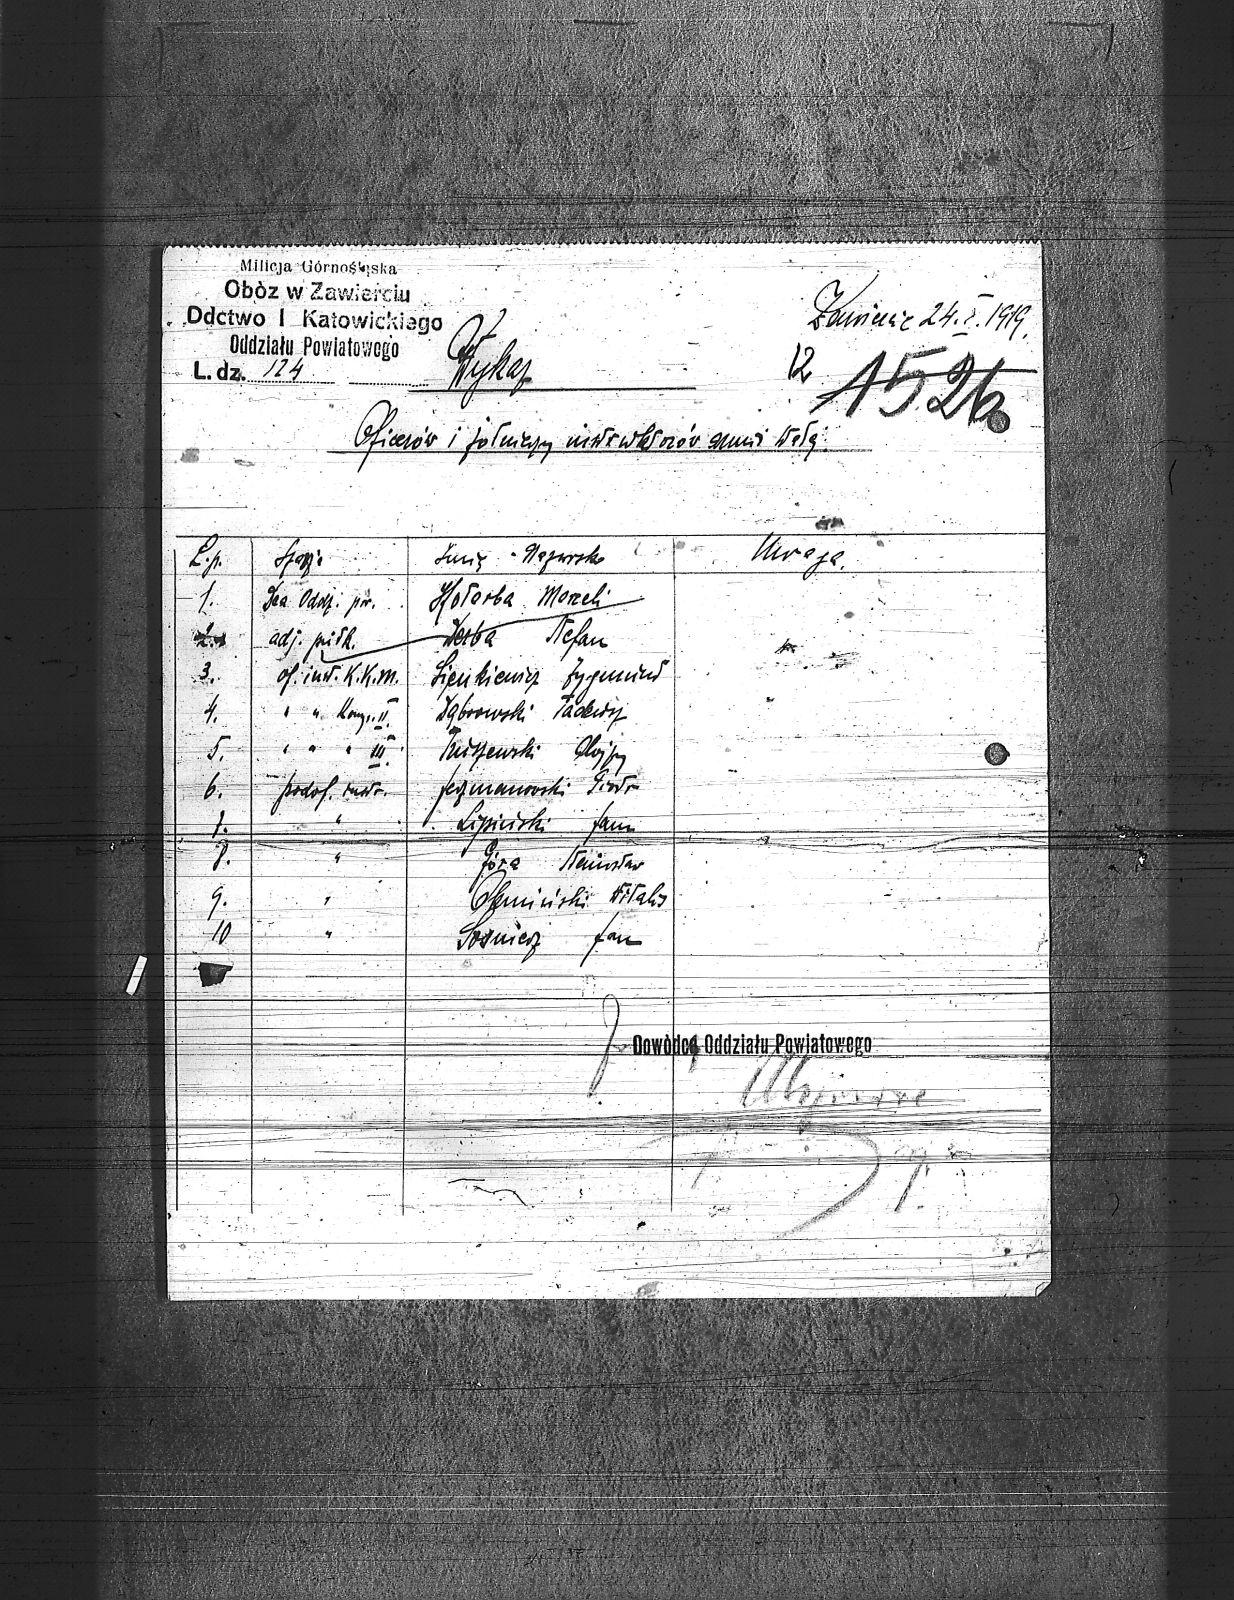 Milicja Górnośląska
Obòz w Zawierciu
Ddctwo I Katowickiego
Oddziału Powiatowego
L. dz. 124
Zawiercie 24.X.1919.
Wykaz
12
1526
Oficerów i żołnierzy instruktorów armii
L.p. Szarża Imię i Nazwisko Uwaga.
1. Dca Oddz. pow. Hołorba Morceli
2. adj. Stefan
3. of. instr. K.K.M. Sienkiewicz Zygmund
4. " " Komp. II. Dąbrowski Tadeusz
5. " " " III. Kuszewski Alojzy
6. podof. instr. Jezmanowski Piotr
7. " Lipiński Jann
8. " Góra Stanisław
9. " Witalis
10 " Sośnierz Jan
Dowòdca Oddziału Powiatowego